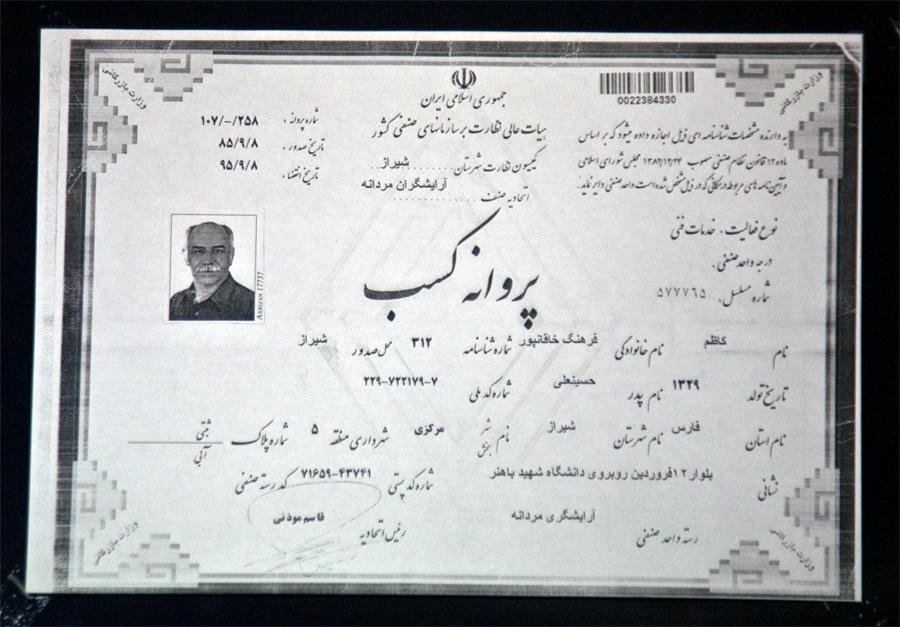 جمهوری اسلامی ایران
هیات عالی نظارت بر سازمانهای صنفی کشور
کمیسیون نظارت شهرستان شیراز
اتحادیه صنف آرایشگران مردانه
0022384330
به دارنده مشخصات شناسنامه ای ذیل اجازه داده میشود که بر اساس
ماده ۱۲ قانون نظام صنفی مصوب ۱۳۸۲/۱۲/۲۴ مجلس شورای اسلامی
و آیین نامه های مربوطه در مکانی که در ذیل مشخص شده است واحد صنفی دایر نماید.
شماره پروانه: ۱۰۷/-/۲۵۸
تاریخ صدور: ۸۵/۹/۸
تاریخ انقضاء: ۹۵/۹/۸
نوع فعالیت: خدمات فنی
درجه واحد صنفی:
شماره مسلسل: ۵۷۷۷۶۵
پروانه کسب
AXRIZAN 17737
نام کاظم نام خانوادگی فرهنگ خاقانپور شماره شناسنامه ۳۱۲ محل صدور شیراز
تاریخ تولد ۱۳۲۹ نام پدر حسینعلی شماره کد ملی ۲۲۹-۷۲۲۱۷۹-۷
نام استان فارس نام شهرستان شیراز نام شهر بخش مرکزی شهرداری منطقه ۵ شماره پلاک ثبتی آبی
نشانی بلوار ۱۲فروردین روبروی دانشگاه شهید باهنر شماره کد پستی ۷۱۶۵۹-۴۳۷۴۱ کد رسته صنفی
رسته واحد صنفی آرایشگری مردانه رئیس اتحادیه قاسم موذنی
وزارت بازرگانی
وزارت بازرگانی
وزارت بازرگانی
وزارت بازرگانی